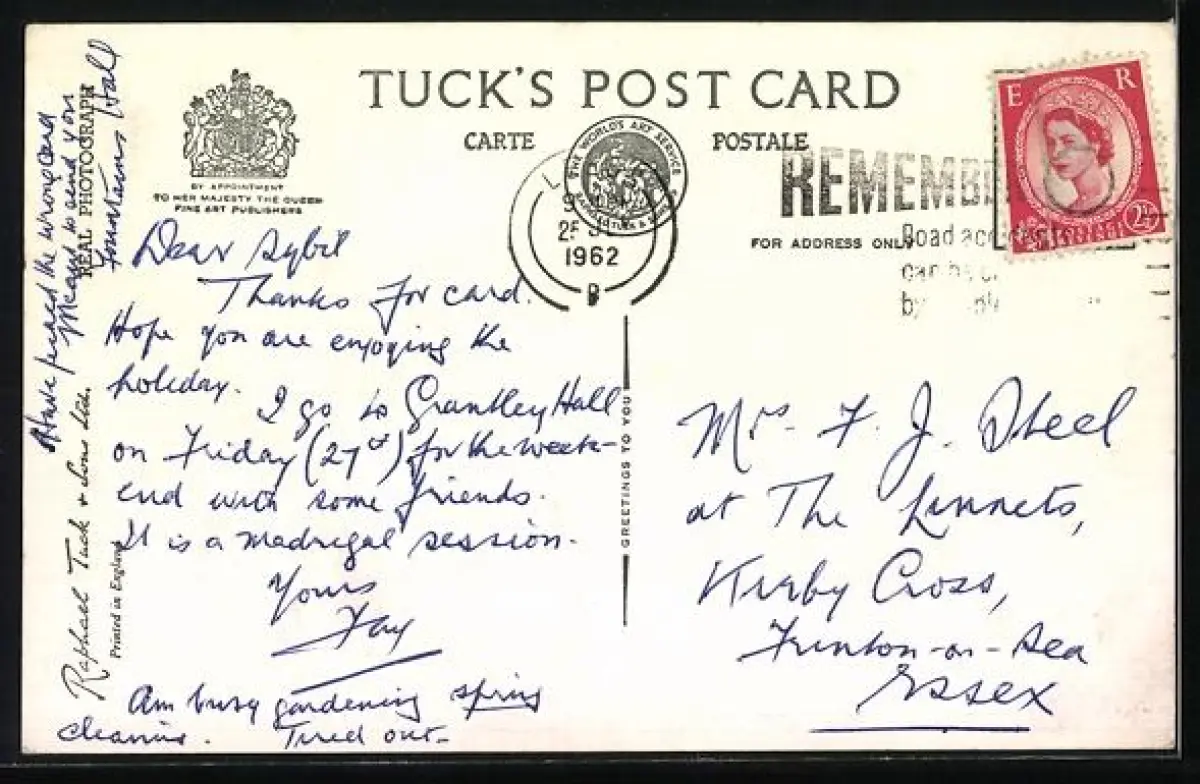 TUCK'S POST CARD
CARTE POSTALE
THE WORLD'S ART SERVICE
BY APPOINTMENT
TO HER MAJESTY THE QUEEN
FINE ART PUBLISHERS
REAL PHOTOGRAPH
Raphael Tuck & Sons Ltd.
Printed in England
FOR ADDRESS ONLY
GREETINGS TO YOU
E R
2½
1962
REMEMB
Road
Have the wrong card
Meant to send you
Fountains Hall
Dear Sybil
Thanks for card.
Hope you are enjoying the
holiday.
I go to Grantley Hall
on Friday (27th) for the week-
end with some friends.
It is a madrigal session.
Yours
Fay
Am busy gardening spring
cleaning. Tired out-
Mrs. F. J. Steel
at The Linnets,
Kirby Cross,
Frinton-on-Sea
Essex